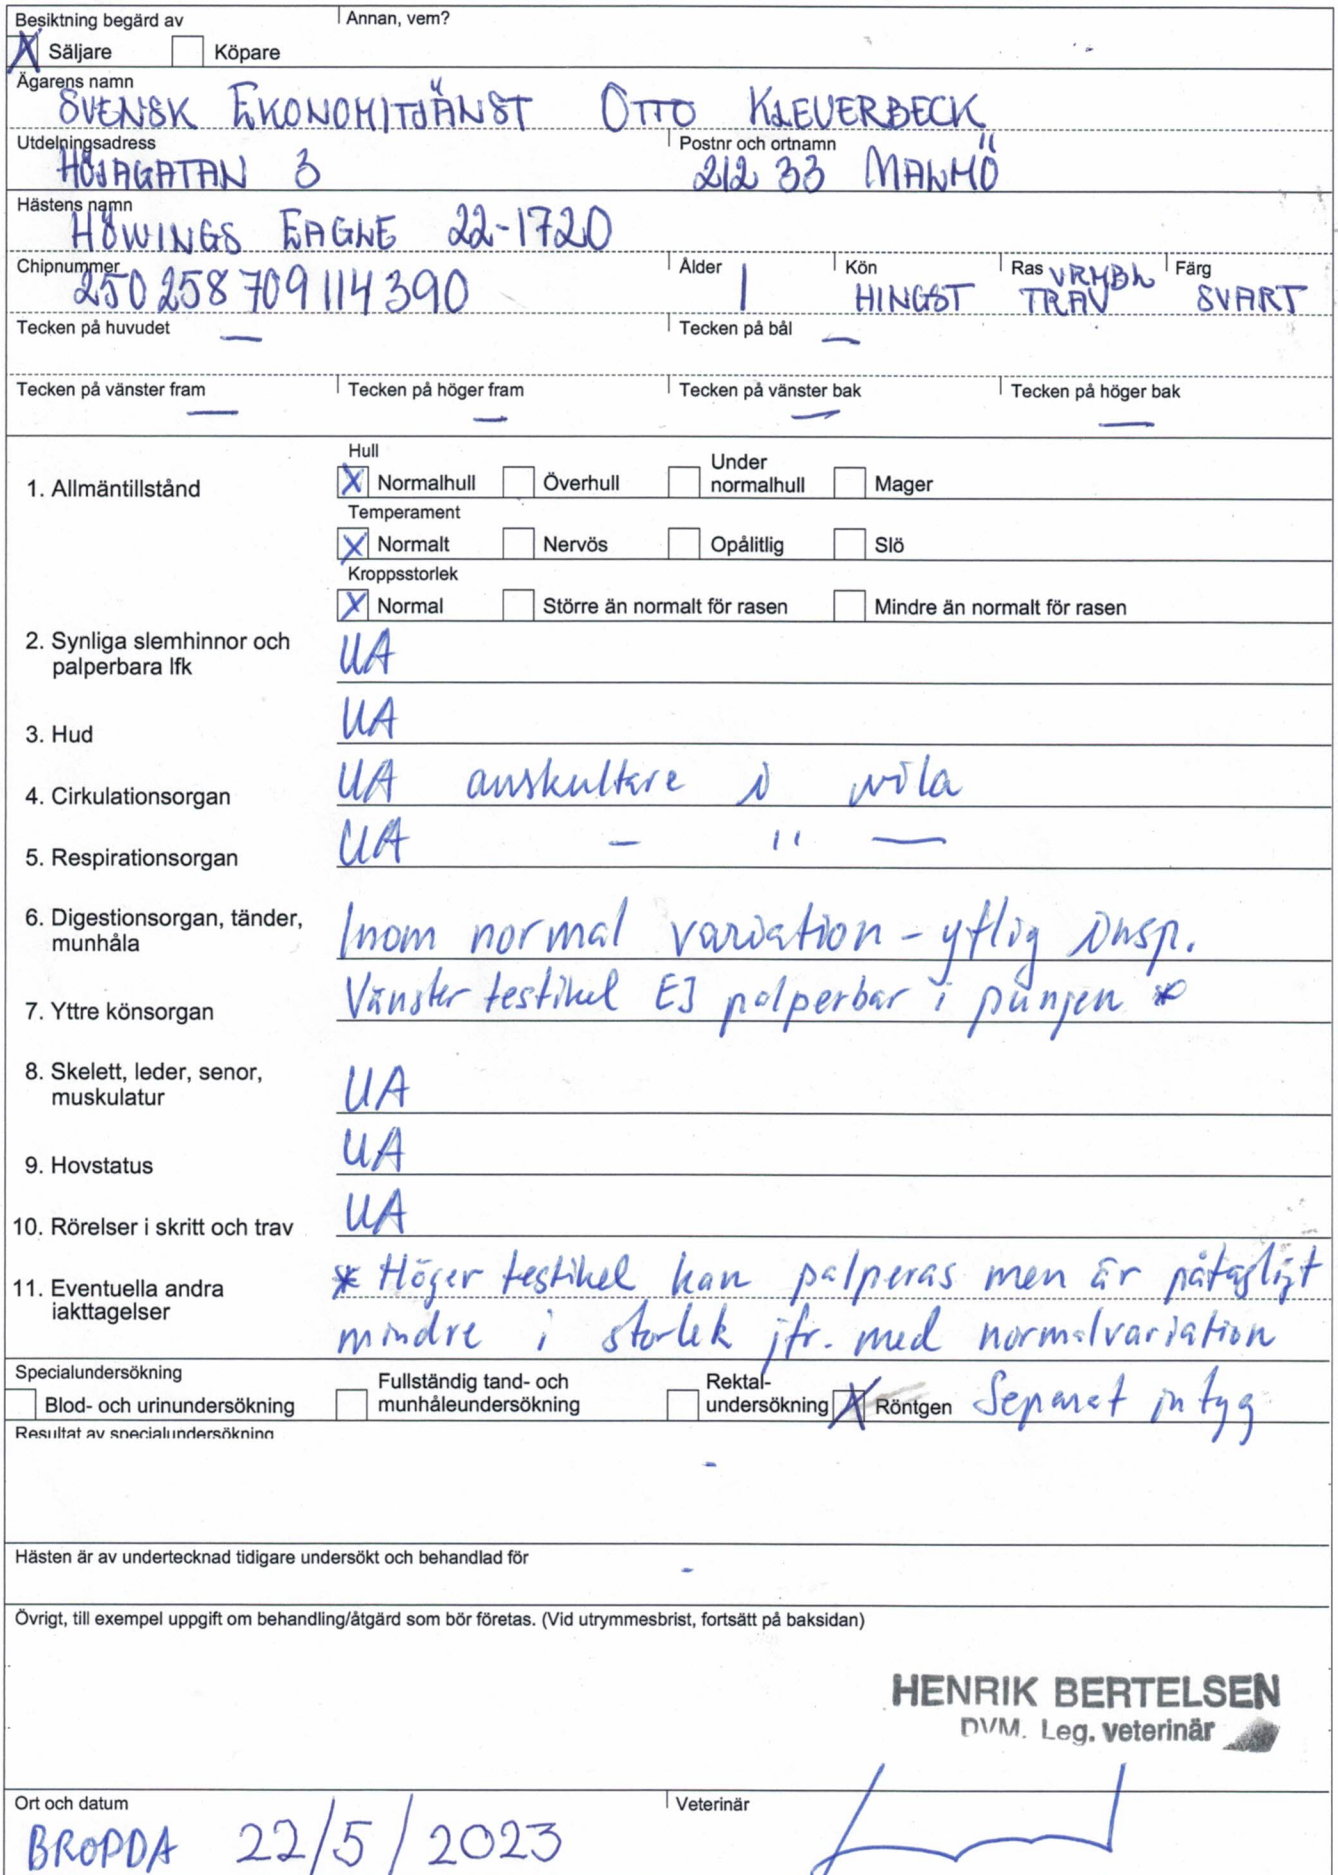 Besiktning begärd av
Annan, vem?
X Säljare Köpare
Ägarens namn
SVENSK EKONOMITJÄNST OTTO KLEVERBECK
Utdelningsadress Postnr och ortnamn
HÖJAGATAN 3 212 33 MALMÖ
Hästens namn
HÖWINGS EAGLE 22-1720
Chipnummer Ålder Kön Ras Färg
250 258 709 114 390 1 HINGST VRMBL TRAV SVART
Tecken på huvudet — Tecken på bål —
Tecken på vänster fram Tecken på höger fram Tecken på vänster bak Tecken på höger bak
— — — —
Hull
1. Allmäntillstånd X Normalhull Överhull Under normalhull Mager
Temperament
X Normalt Nervös Opålitlig Slö
Kroppsstorlek
X Normal Större än normalt för rasen Mindre än normalt för rasen
2. Synliga slemhinnor och palperbara lfk UA
3. Hud UA
4. Cirkulationsorgan UA auskultare i vila
5. Respirationsorgan UA — " —
6. Digestionsorgan, tänder, munhåla Inom normal variation - ytlig insp.
7. Yttre könsorgan Vänster testikel EJ palperbar i pungen *
8. Skelett, leder, senor, muskulatur UA
9. Hovstatus UA
10. Rörelser i skritt och trav UA
11. Eventuella andra iakttagelser * Höger testikel kan palperas men är påtagligt
mindre i storlek jfr. med normalvariation
Specialundersökning
Blod- och urinundersökning Fullständig tand- och munhåleundersökning Rektal-undersökning X Röntgen Separat intyg
Resultat av specialundersökning
-
Hästen är av undertecknad tidigare undersökt och behandlad för
-
Övrigt, till exempel uppgift om behandling/åtgärd som bör företas. (Vid utrymmesbrist, fortsätt på baksidan)
HENRIK BERTELSEN
DVM. Leg. veterinär
Ort och datum Veterinär
BRODDA 22/5/2023